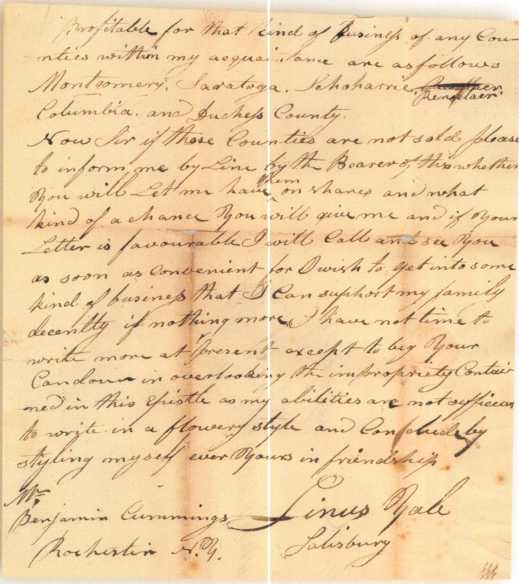 Profitable for that kind of Business of any Cou-
nties within my acquaintance are as follows
Montgomery, Saratoga, Schoharrie, Renselaer
Columbia, and Duchess County.
Now Sir if those Counties are not sold please
to inform me by Line by the Bearer of this whether
You will Let me have them on shares and what
kind of a chance You will give me and if Your
Letter is favourable I will Call and see You
as soon as convenient for I wish to get into some
kind of business that I can support my family
decently if nothing more, I have not time to
write more at present except to beg Your
Candour in overlooking the impropriety Contai
ned in this Epistle as my abilities are not sufficien
to write in a flowery style and Conclude by
styling myself ever Yours in friendship
Mr
Benjamin Cummings Linus Yale
Rochester N.Y. Salisbury